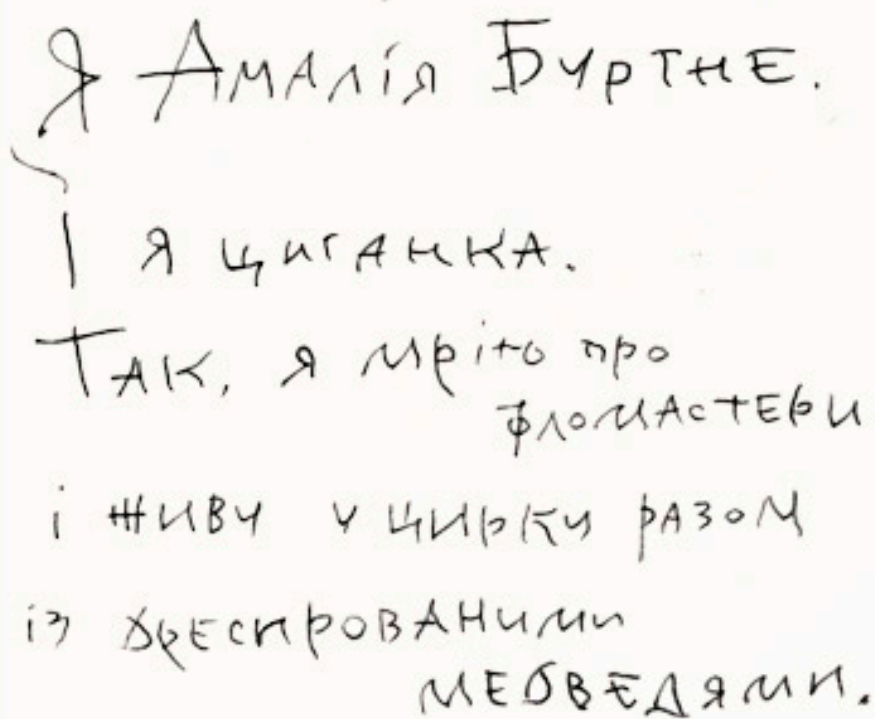 Я Амалія Буртне.
І я циганка.
Так, я мрію про
фломастери
і живу у цирку разом
із дресированими
медведями.